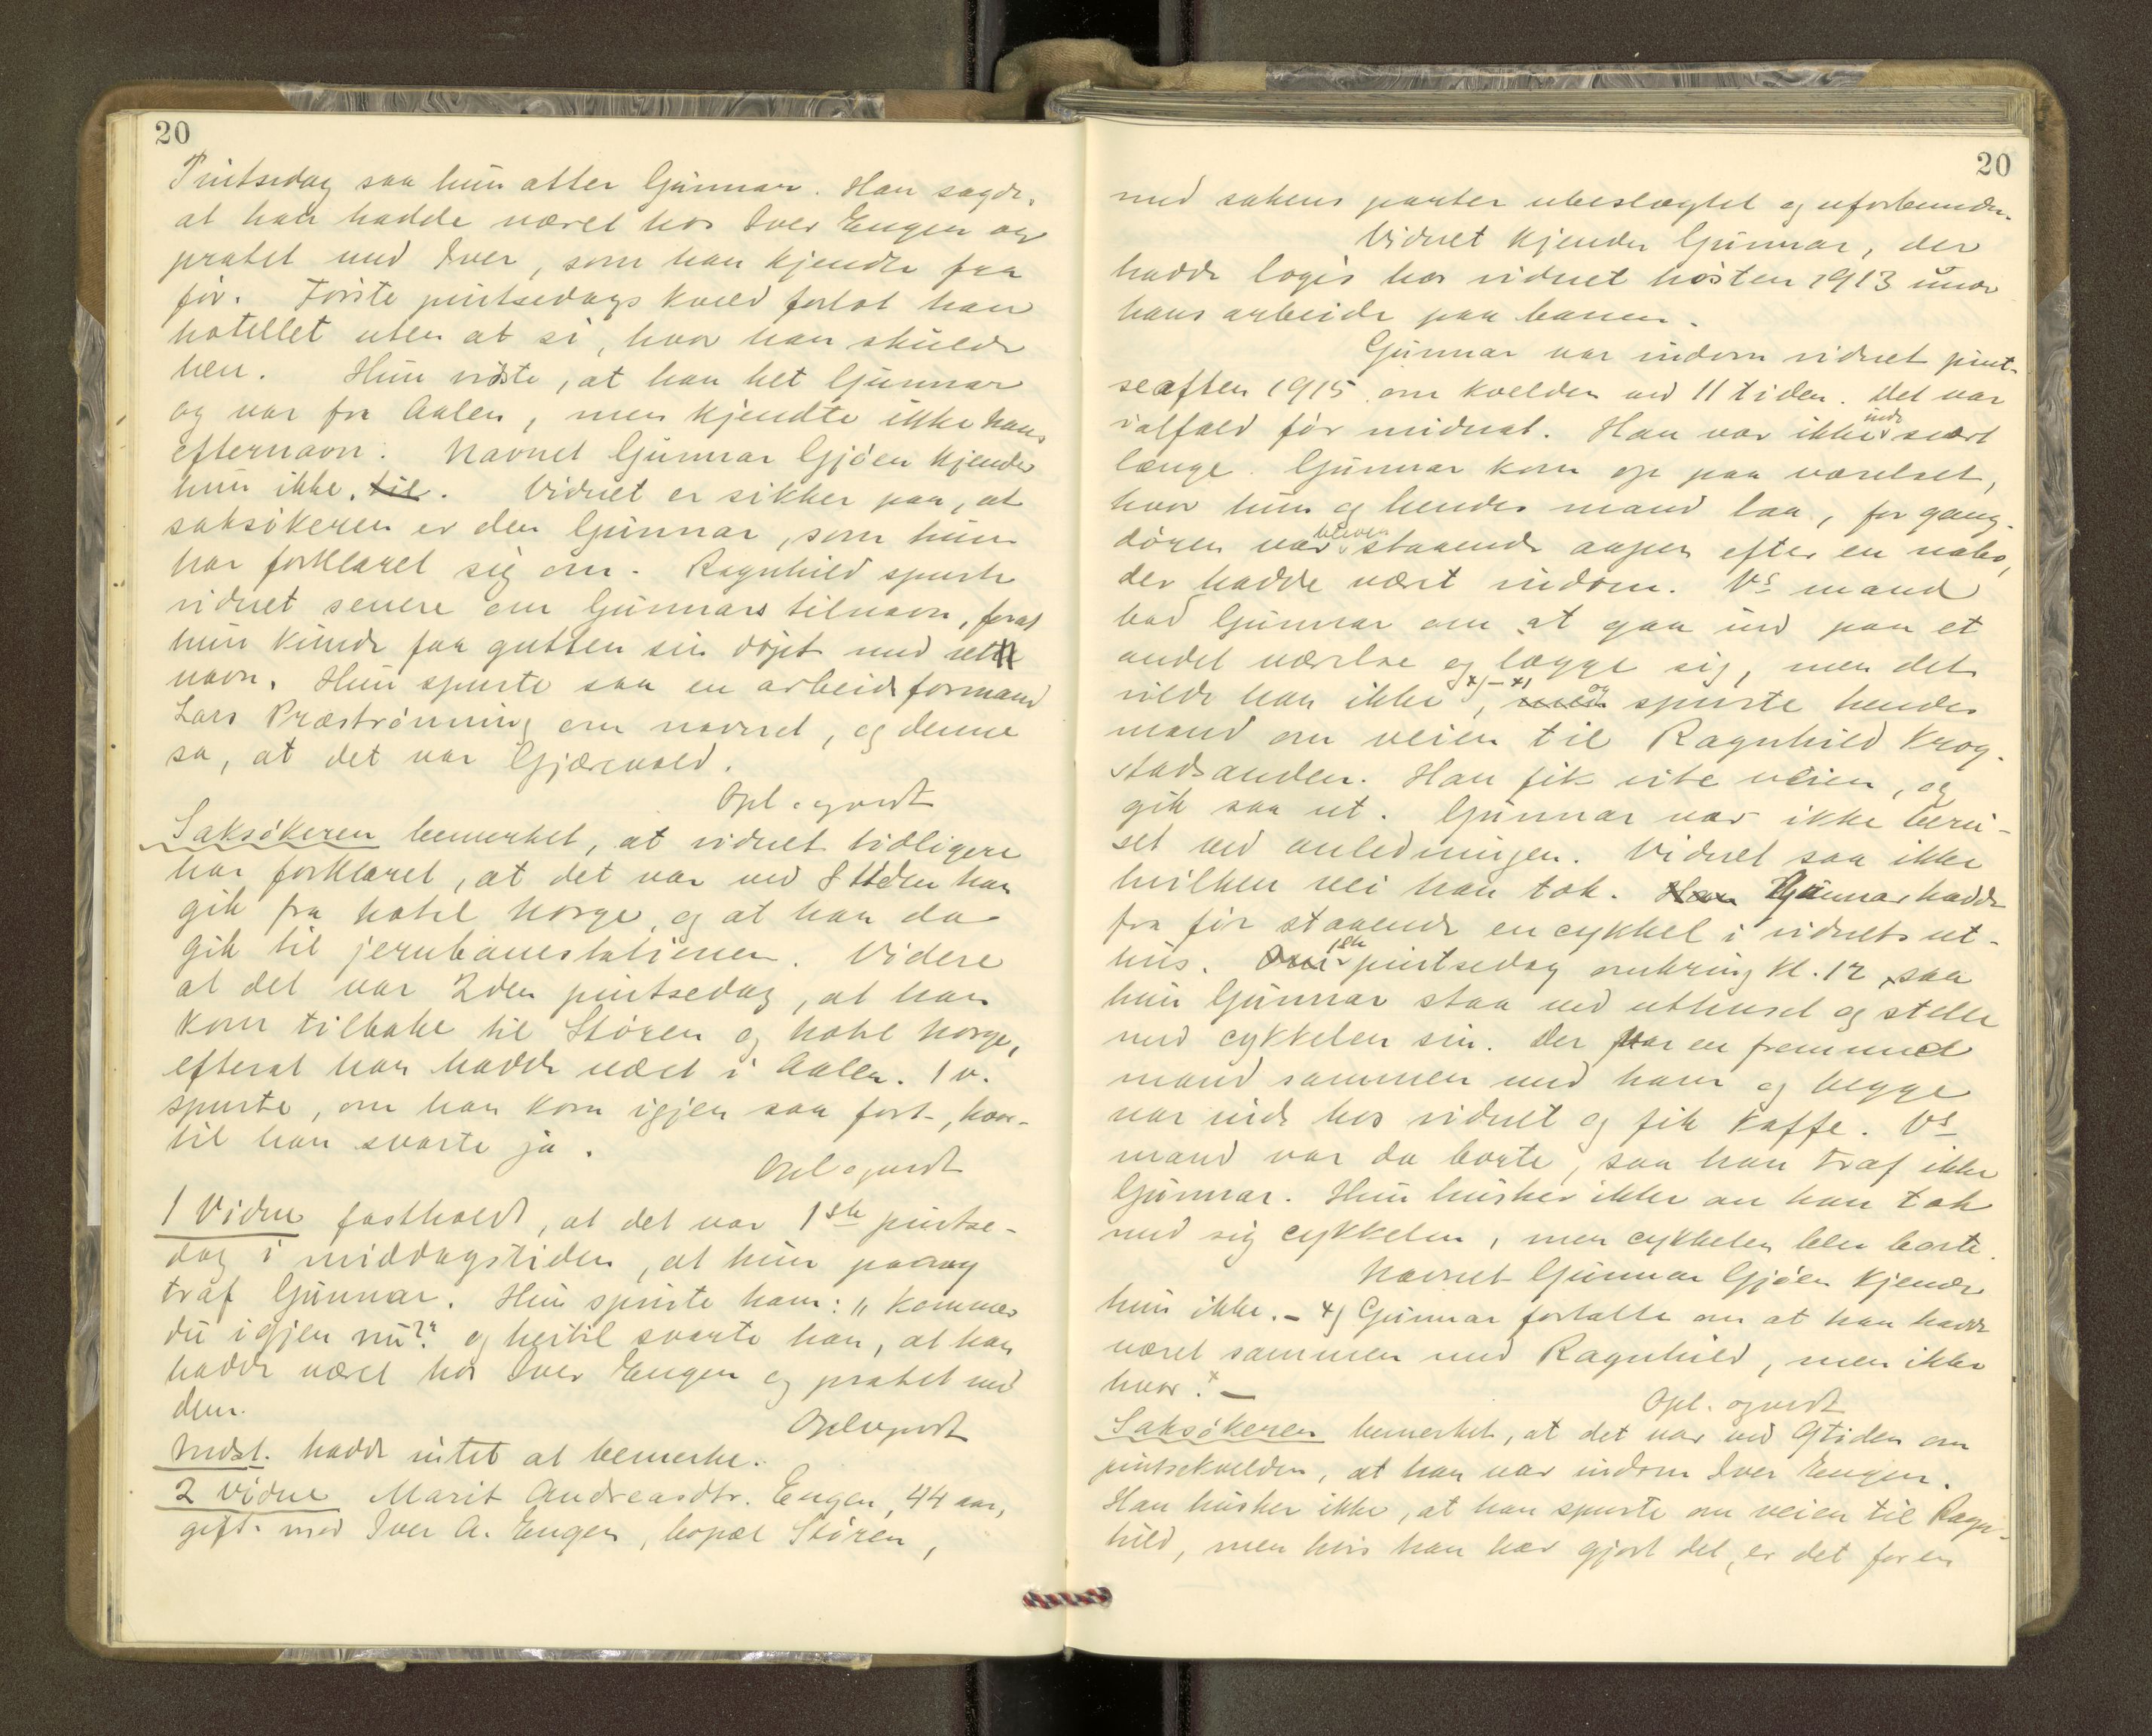 20
Pintsedag saa hun atter Gunnar. Han sagde,
at han hadde været hos Iver Engen og
pratet med Iver, som han kjendte fra
før. Første pintsedags kveld forlot han
hotellet uten at si, hvor han skulde
hen. Hun visste, at han het Gunnar
og var fra Aalen, men kjendte ikke hans
efternavn. Navnet Gunnar Gjøen kjender
hun ikke til. Vidnet er sikker paa, at
saksøkeren er den Gunnar, som hun
har forklaret sig om. Ragnhild spurte
vidnet senere om Gunnars tilnavn, forat
hun kunde faa gutten sin døpt med rett
navn. Hun spurte saa en arbeidsformand
Lars Præstrønning om navnet, og denne
sa, at det var Gjærevold.
Opl. og vedt
Saksøkeren bemerket, at vidnet tidligere
har forklaret, at det var ved 8 tiden han
gik fra hotel Norge, og at han da
gik til jernbanestationen. Videre
at det var 2den pintsedag, at han
kom tilbake til Støren og hotel Norge,
efterat han hadde været i Aalen. 1 v.
spurte, om han kom igjen saa fort, hvor-
til han svarte ja.
Opl. og vedt
1 Vidne fastholdt, at det var 1ste pintse-
dag i middagstiden, at hun paany
traf Gunnar. Hun spurte ham: "Kommer
du igjen nu?" og hertil svarte han, at han
hadde været hos Iver Engen og pratet med
dem.
Opl og vedt
Motst. hadde intet at bemerke.
2 Vidne Marit Andreasdtr. Engen, 44 aar,
gift med Iver A. Engen, bopæl Støren,
20
med sakens parter ubeslægtet og uforbunden.
Vidnet kjender Gunnar, der
hadde logis hos vidnet høsten 1913 under
hans arbeide paa banen.
Gunnar var indom vidnet pint-
seaften 1915 om kvelden ved 11 tiden. Det var
ialfald før midnat. Han var ikke inde svært
længe. Gunnar kom op paa værelset,
hvor hun og hendes mand laa, for gang-
døren var bleven staaende aapen efter en nabo,
der hadde vært indom. Vs mand
bad Gunnar om at gaa ind paa et
andet værelse og lægge sig, men det
vilde han ikke x) - x), men og spurte hendes
mand om veien til Ragnhild Krog-
stadsanden. Han fik vite veien, og
gik saa ut. Gunnar var ikke beru-
set ved anledningen. Vidnet saa ikke
hvilken vei han tok. Han Gunnar hadde
fra før staaende en cykkel i vidnets ut-
hus. 1ste pintsedag omkring kl. 12 saa
hun Gunnar staa ved uthuset og stelle
med cykkelen sin. Der var en fremmed
mand sammen med ham og begge
var inde hos vidnet og fik kaffe. Vs
mand var da borte, saa han traf ikke
Gunnar. Hun husker ikke om han tok
med sig cykkelen, men cykkelen blev borte.
Navnet Gunnar Gjøen kjender
hun ikke. - x) Gunnar fortalte om at han hadde
været sammen med Ragnhild, men ikke
hvor. x -
Opl. og vedt
Saksøkeren bemerket, at det var ved 9 tiden om
pintsekvelden, at han var indom Iver Engen.
Han husker ikke, at han spurte om veien til Ragn-
hild, men hvis han har gjort det, er det for en